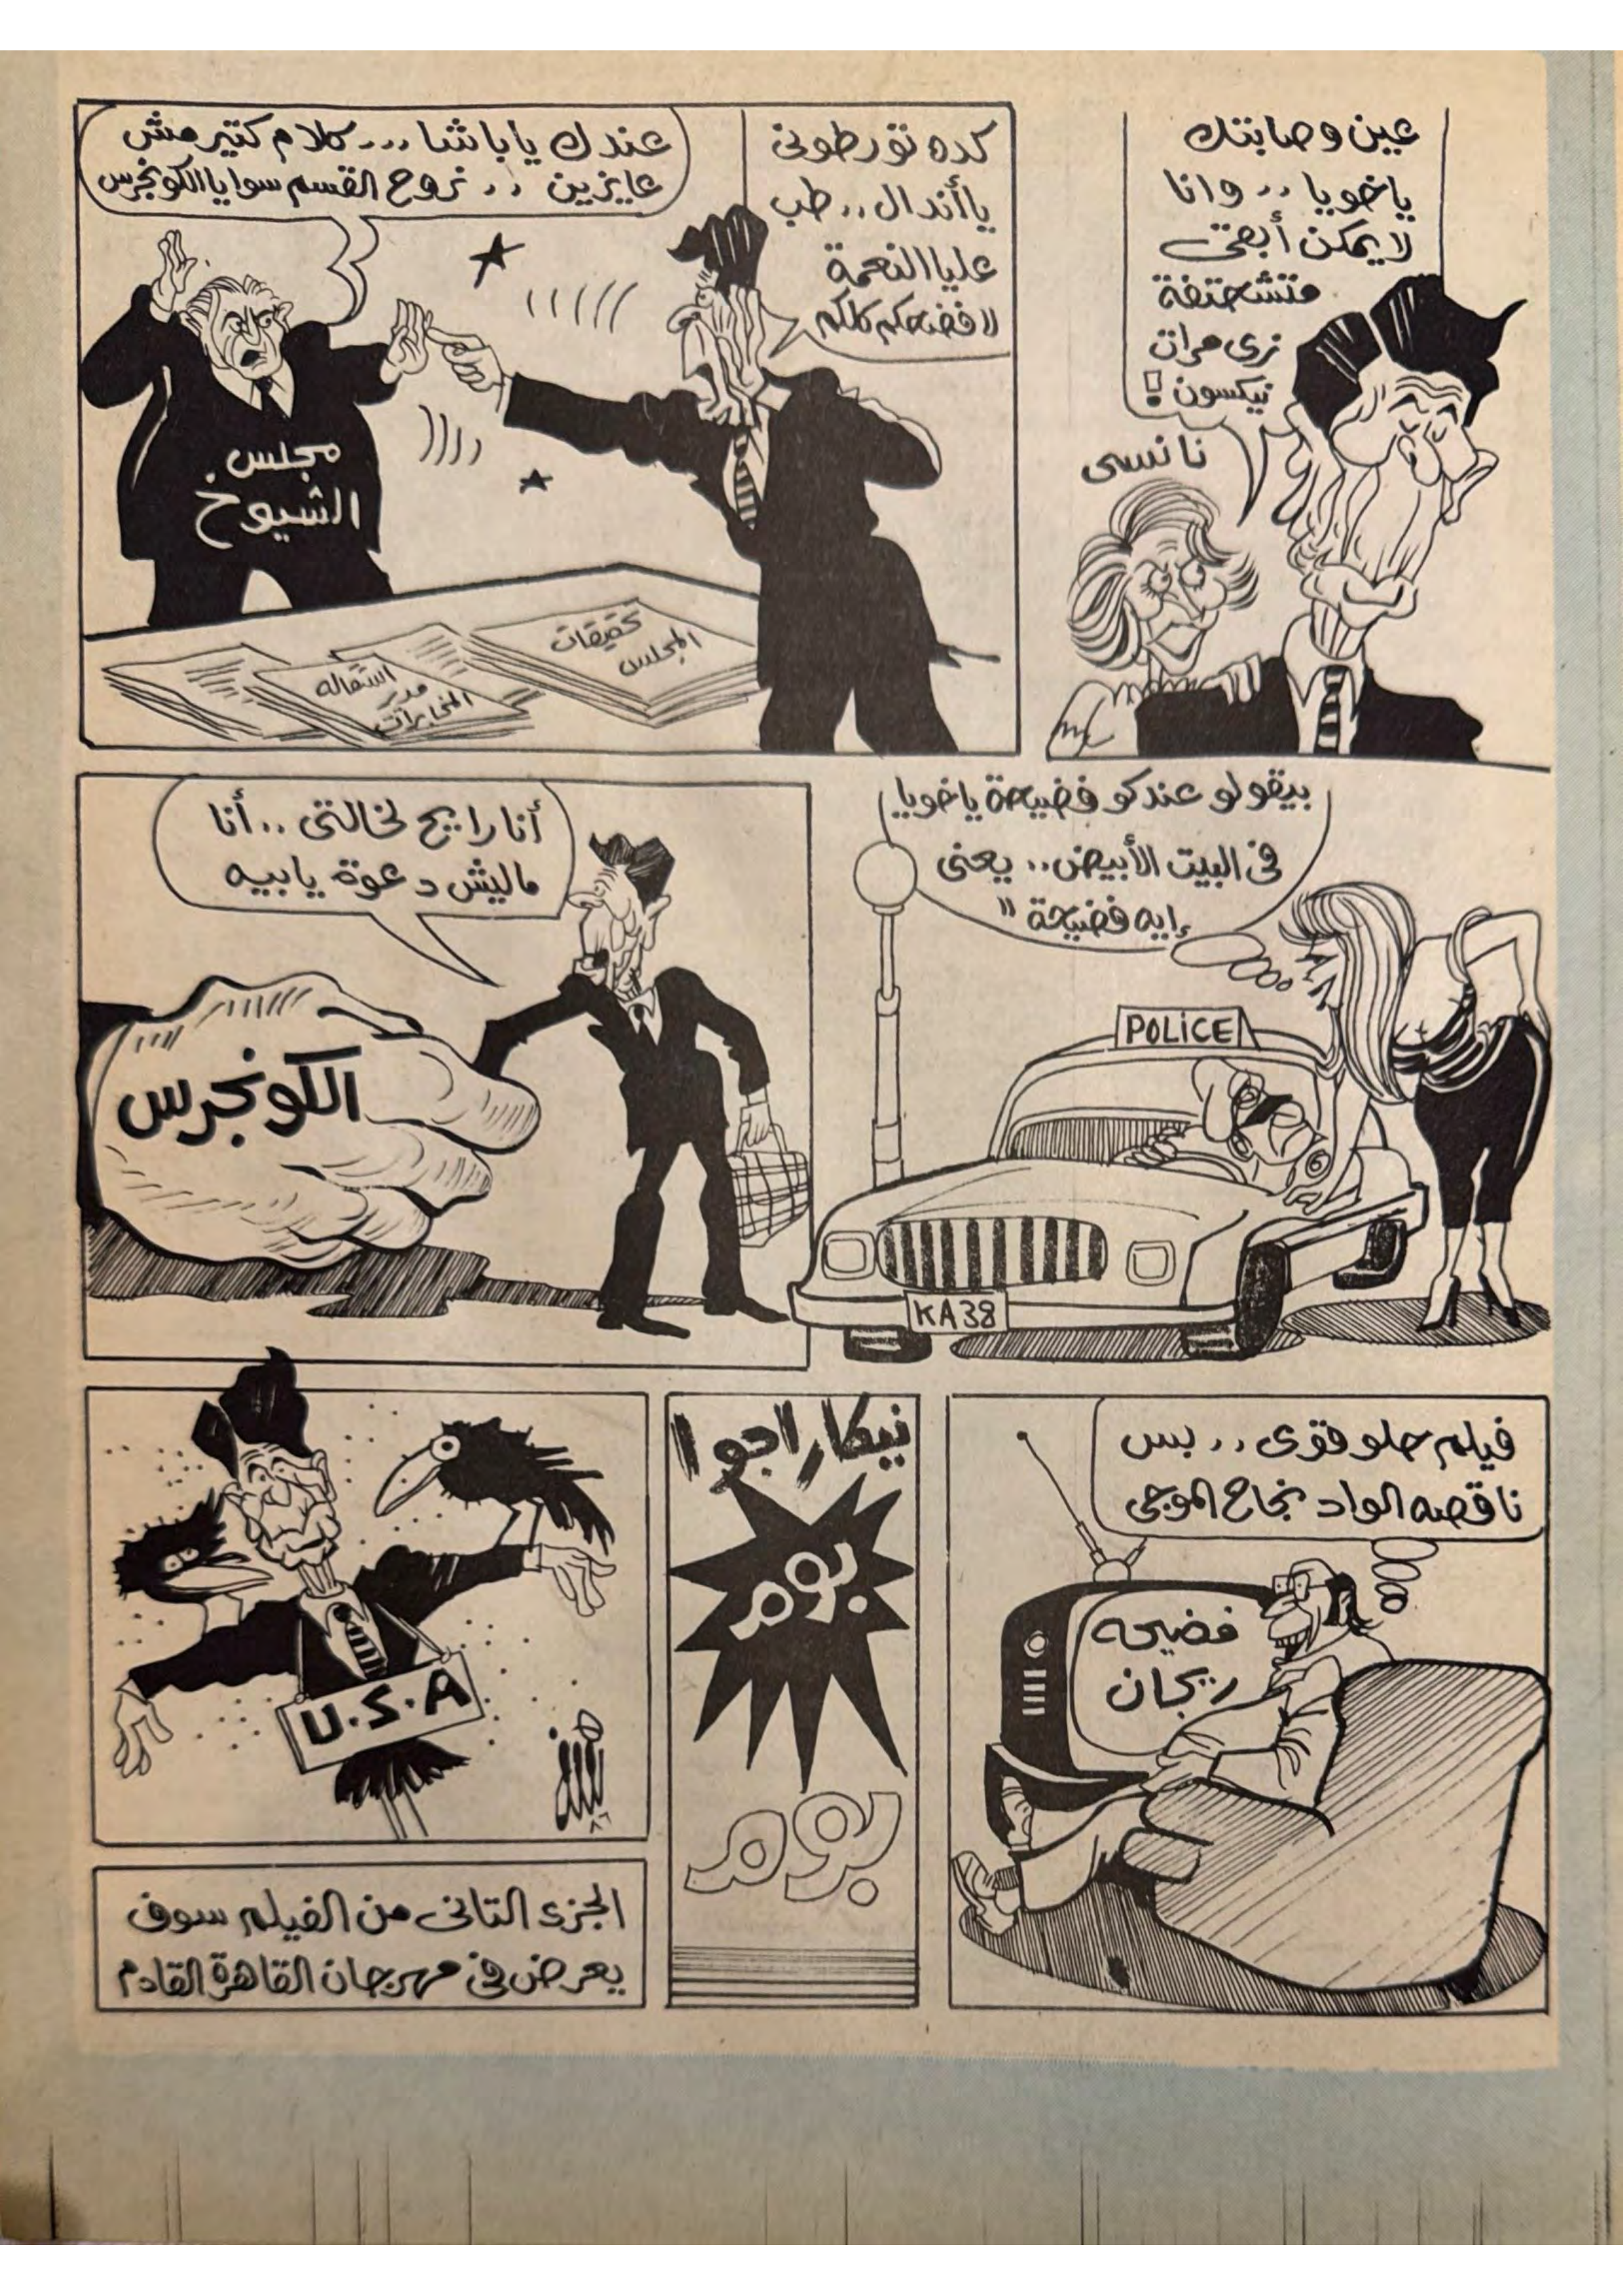 عين وصابتك
ياخويا .. وانا
لا يمكن أبقى
متشحتفة
زى مرات
نيكسون !
نانسى
كده تورطونى
يا أندال .. طب
عليا النعمة
لافضحكم كلكم
عندك يا باشا ... كلام كتير مش
عايزين .. نروح القسم سوا يا الكونجرس
مجلس
الشيوخ
تحقيقات
المجلس
استقاله
مدير
المخابرات
بيقولو عندكو فضيحة ياخويا
فى البيت الأبيض .. يعنى
إيه فضيحة "
POLICE
KA38
أنا رايح لخالتى .. أنا
ماليش دعوة يابيه
الكونجرس
فيلم حلو قوى .. بس
ناقصه الواد نجاح الموجى
فضيحه
ريجان
نيكاراجوا
بوم
بوم
U.S.A
٨٦
الجزء التانى من الفيلم سوف
يعرض فى مهرجان القاهرة القادم